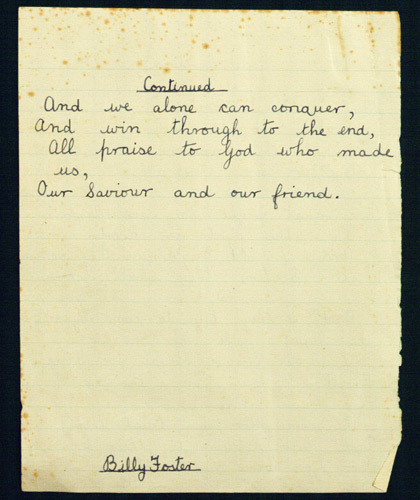 Continued
And we alone can conquer,
And win through to the end,
All praise to God who made
us,
Our Saviour and our friend.
Billy Foster